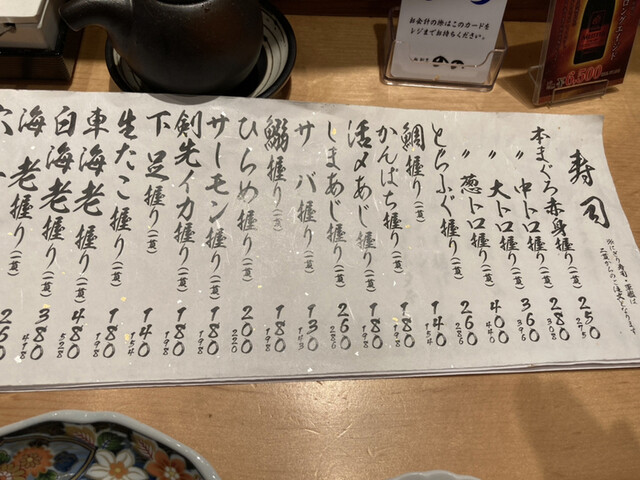 寿司
※にぎり寿司・軍艦は
二貫からのご注文となります
本まぐろ赤身握り(一貫)
〃 中トロ握り(一貫)
〃 大トロ握り(一貫)
〃 葱トロ握り(一貫)
とらふぐ握り(一貫)
鯛握り(一貫)
かんぱち握り(一貫)
活〆あじ握り(一貫)
しまあじ握り(一貫)
サバ握り(一貫)
鰯握り(一貫)
ひらめ握り(一貫)
サーモン握り(一貫)
剣先イカ握り(一貫)
下足握り(一貫)
生たこ握り(一貫)
車海老握り(一貫)
白海老握り(一貫)
海老握り(一貫)
250 275
280 308
360 396
400 440
260 286
140 154
180 198
180 198
260 286
130 143
180 198
200 220
180 198
140 154
180 198
480 528
380 418
260
お会計の際はこのカードを
レジまでお持ちください。
6,500